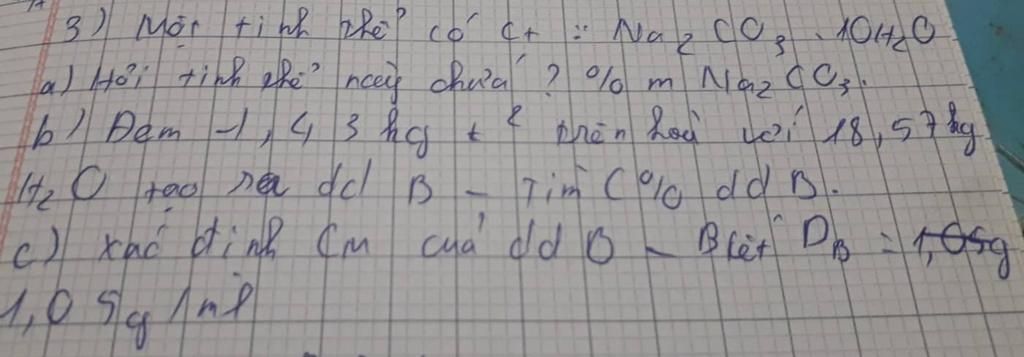 3) Một tinh thể có Ct :: Na2CO3.10H2O
a) Hỏi tinh thể này chứa ? % m Na2CO3.
b) Đem 1,43 kg t² trên hoà với 18,57 kg
H2O tạo ra dd B - Tìm C% dd B.
c) xác định CM của dd B - Biết DB = 1,05g
1,05g/ml